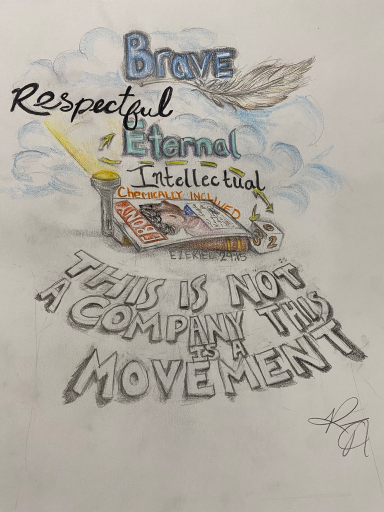 Brave
Respectful
Eternal
Intellectual
CHEMICALLY INCLINED
BRONX
2
EZEKIEL 24:15
THIS IS NOT
A COMPANY THIS
IS A
MOVEMENT